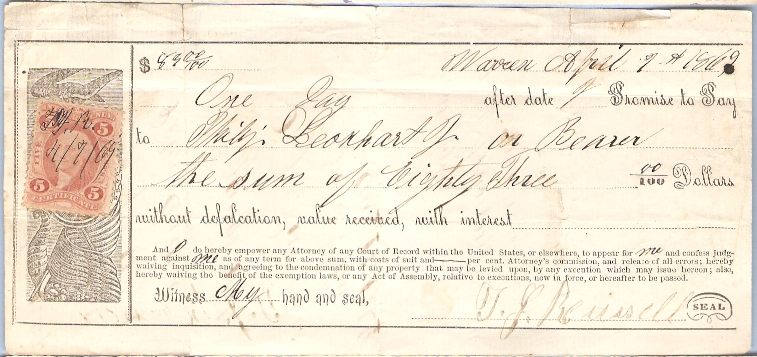 $ 83 00/00 Warren April 9th 1869
One Day after date I Promise to Pay
to Philip Leonhart Jr or Bearer
the sum of Eighty Three 00/100 Dollars
without defalcation, value received, with interest
And I do hereby empower any Attorney of any Court of Record within the United States, or elsewhere, to appear for me and confess judg-
ment against me as of any term for above sum, with costs of suit and — per cent. Attorney's commission, and release of all errors; hereby
waiving inquisition, and agreeing to the condemnation of any property that may be levied upon, by any execution which may issue hereon; also,
hereby waiving the benefit of the exemption laws, or any Act of Assembly, relative to executions, now in force, or hereafter to be passed.
Witness My hand and seal,
T. J. Russell SEAL
5
4/9/69
5 5
CERTIFICATE